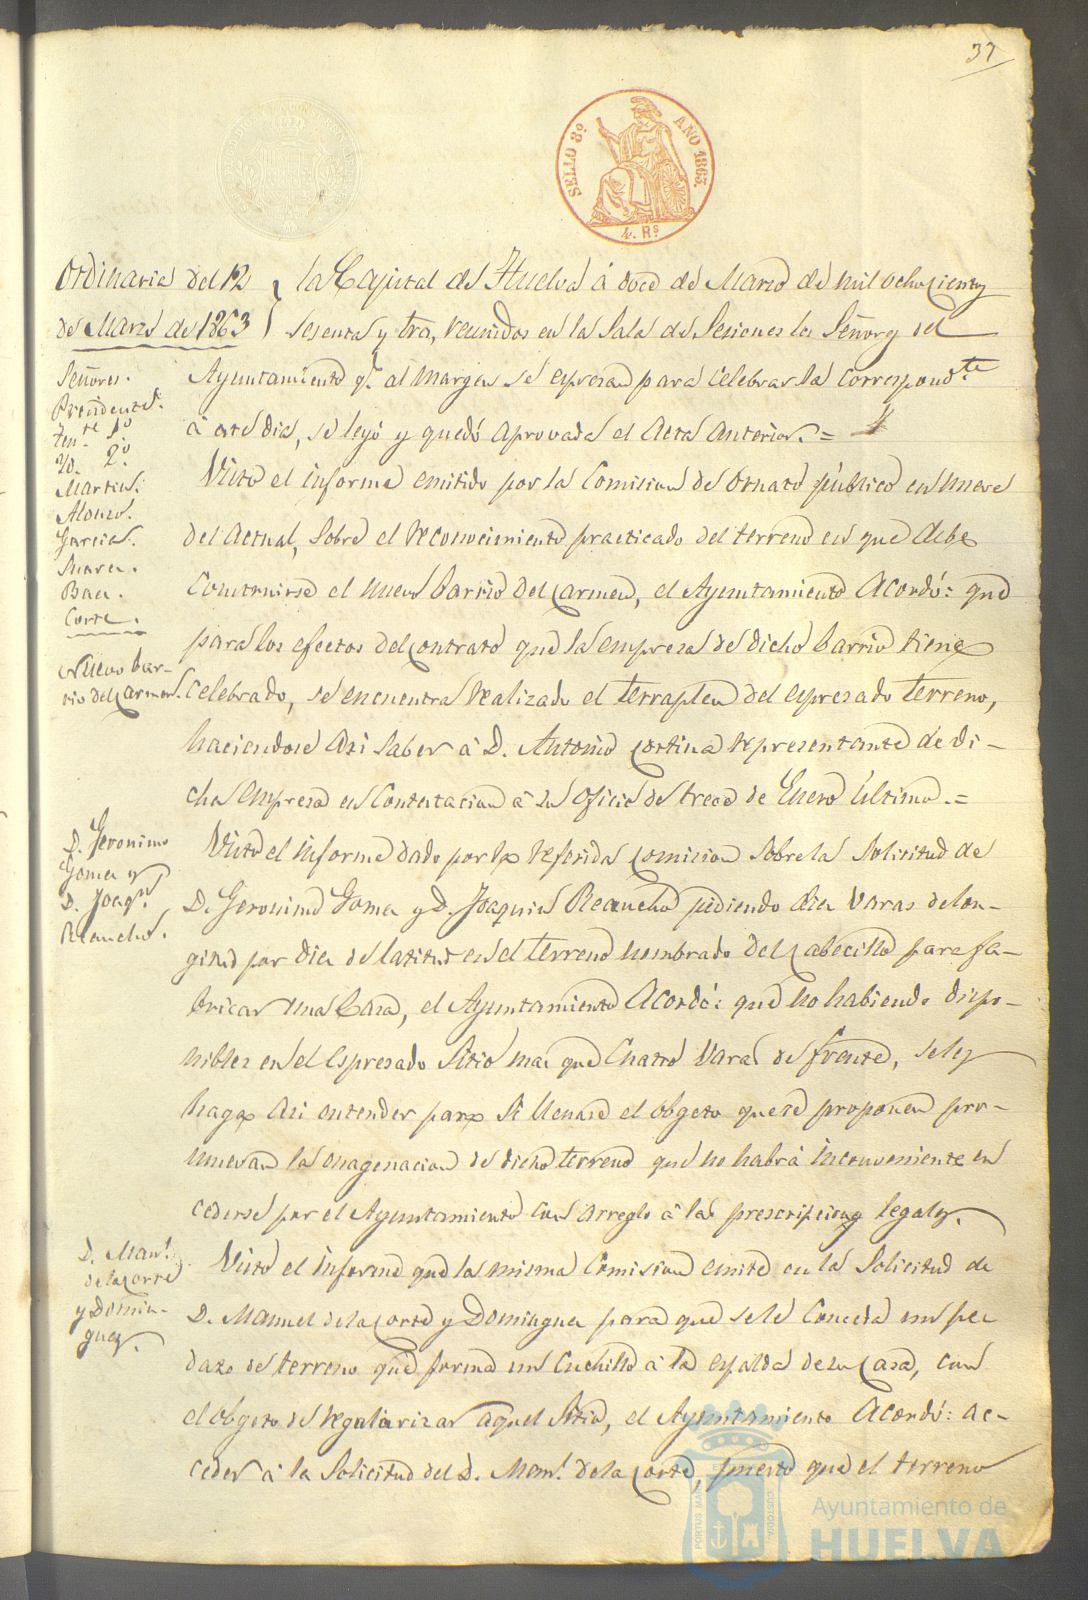 37
SELLO 8º AÑO 1863.
4. Rs
Ordinaria del 12
de Marzo de 1863
la Capital de Huelva á doce de Marzo de mil ochocientos
sesenta y tres, reunidos en la Sala de Sesiones los Señores del
Señores.
Presidente.
Tente. 1º
Yd. 2º.
Martin.
Alonso.
Garcia.
Suarez.
Baez.
Corte.
Ayuntamiento q.e al margen se espresan para celebrar la correspond.te
á este dia, se leyó y quedó aprovada el Acta anterior. =
Visto el informe emitido por la Comision de Ornato público en nueve
del actual, sobre el reconocimiento practicado del terreno en que debe
construirse el nuevo barrio del Carmen, el Ayuntamiento Acordó: que
para los efectos del contrato que la empresa de dicho barrio tiene
Nuevo bar-
rio del Carmen.
celebrado, se encuentra realizado el terraplen del espresado terreno,
haciendose asi saber á D. Antonio Cortina representante de di-
cha empresa en contestacion á su oficio de trece de Enero último. =
D. Geronimo
Gomez y
D. Joaqn.
Reancho.
Visto el informe dado por la referida Comision sobre la solicitud de
D. Geronimo Gomez y D. Joaquin Reancho pidiendo diez varas de lon-
gitud por diez de latitud en el terreno nombrado del Cabecillo para fa-
bricar una Casa, el Ayuntamiento Acordó: que no habiendo dispo-
nibles en el espresado Sitio mas que cuatro varas de frente, se les
haga asi entender para si llenase el obgeto que se proponen pro-
muevan la enagenacion de dicho terreno que no habrá inconveniente en
cederse por el Ayuntamiento con arreglo á las prescripciones legales.
D. Manl.
de la Corte
y Domin-
guez.
Visto el informe que la misma Comision emite en la Solicitud de
D. Manuel de la Corte y Dominguez para que se le conceda un pe
dazo de terreno que forma un cuchillo á la espalda de su Casa, con
el obgeto de regularizar aquel Sitio, el Ayuntamiento Acordó: ac-
ceder á la Solicitud del D. Manl. de la Corte, puesto que el terreno
PORTUS MARIS ET TERRAE CUSTODIA
Ayuntamiento de
HUELVA